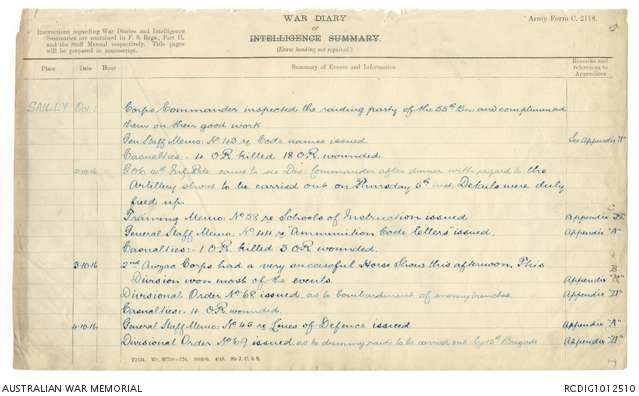 WAR DIARY
or
INTELLIGENCE SUMMARY.
(Erase heading not required.)
Army Form C. 2118.
Instructions regarding War Diaries and Intelligence
Summaries are contained in F. S. Regs., Part II.
and the Staff Manual respectively. Title pages
will be prepared in manuscript.
Place Date Hour Summary of Events and Information Remarks and references to Appendices
SAILLY Oct 1 Corps Commander inspected the raiding party of the 55th Bn and complimented
them on their good work
Gen Staff Memo: No 43 re Code names issued See Appendix "A"
Casualties:- 4 O.R. killed 18 O.R. wounded.
2-10-16 came to see Div. Commander after dinner with regard to the
Artillery shoot to be carried out on Thursday 5th inst. Details were duly
fixed up.
Training Memo: No 58 re Schools of Instruction issued Appendix
General Staff Memo: No 44 re "Ammunition Code letters" issued. Appendix "A"
Casualties:- 1 O.R. killed 3 O.R. wounded.
3-10-16 2nd Anzac Corps had a very successful Horse Show this afternoon. This
Division won most of the events. Appendix
Divisional Order No 68 issued as to bombardment of enemy trenches Appendix "B"
Casualties:- 4 O.R. wounded.
4-10-16 General Staff Memo: No 45 re Lines of Defence issued Appendix "A"
Divisional Order No 69 issued as to dummy raids to be carried out by Brigade Appendix "B"
AUSTRALIAN WAR MEMORIAL
RCDIG1012510